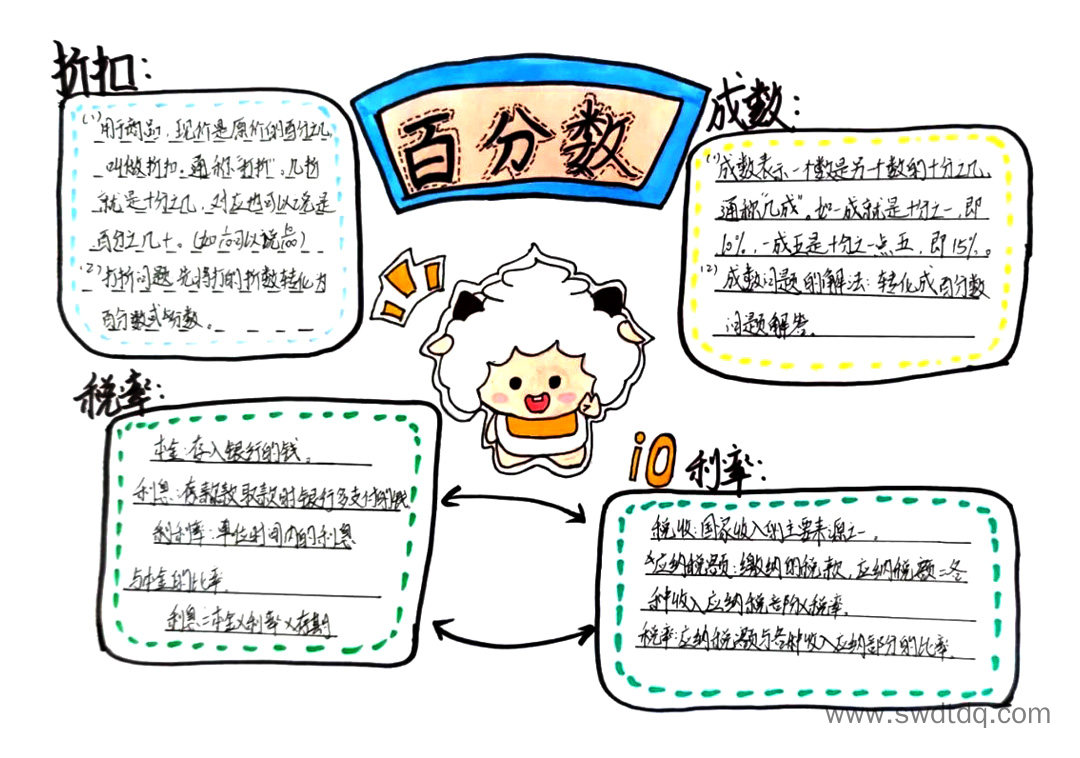 百分数
折扣：
(1)用于商品，现价是原价的百分之几，
叫做折扣。通称"打折"。几折
就是十分之几，对应也可以说是
百分之几十。
(2)打折问题，先将打的折数转化为
百分数或分数。
成数：
(1)成数表示一个数是另一个数的十分之几，
通称"几成"。如一成就是十分之一，即
10%，一成五是十分之一点五，即15%。
(2)成数问题的解法：转化成百分数
问题解答。
税率：
本金：存入银行的钱。
利息：存款取款时银行多支付的钱
利率：单位时间内的利息
与本金的比率
利息=本金×利率×存期
10
利率：
税收：国家收入的主要来源之一。
应纳税额：缴纳的税款，应纳税额=各
种收入应纳税部分×税率。
税率：应纳税额与各种收入应纳部分的比率。
www.swdtdq.com